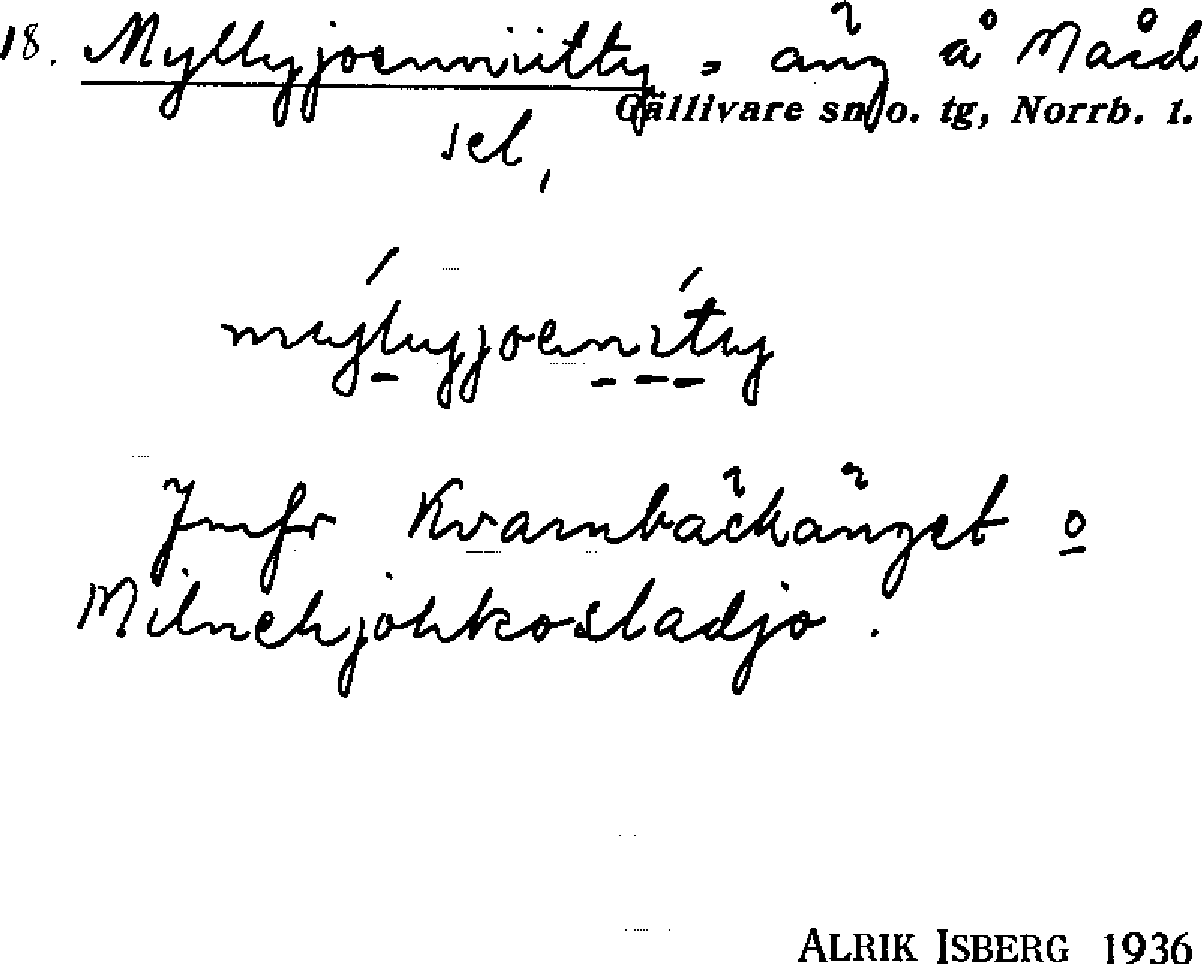 18. Myllyjoenniitty = äng å Måd
Gällivare sn o. tg, Norrb. l.
sel,
mylyjoenity
Jmfr Kvarnbäckänget o
Milnehjohkosladjo.
ALRIK ISBERG 1936